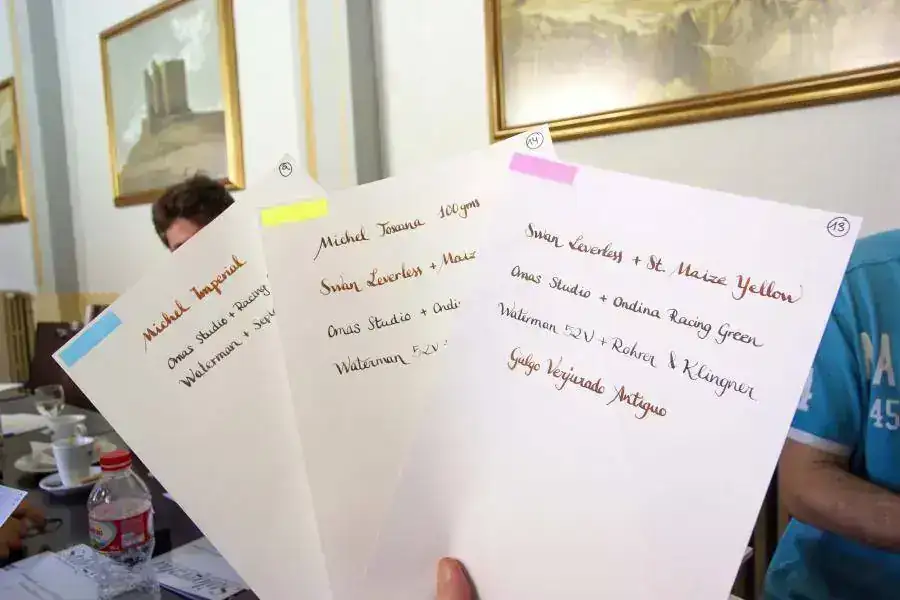 9
Michel Imperial
Omas Studio + Racing
Waterman +
14
Michel Toscana 100gms
Swan Leverless +
Omas Studio +
Waterman 52V
13
Swan Leverless + St. Maize Yellow
Omas Studio + Ondina Racing Green
Waterman 52V + Rohrer & Klingner
Galgo Verjurado Antiguo
45